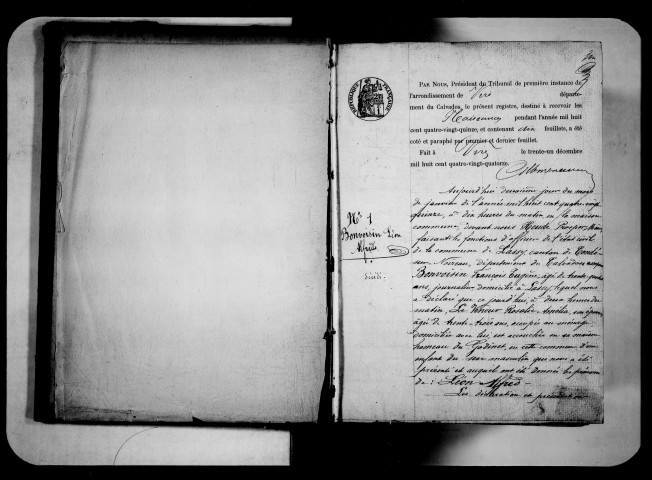 RÉPUBLIQUE FRANÇAISE
PAR NOUS, Président du Tribunal de première instance de
l'arrondissement de Vire départe-
ment du Calvados, le présent registre, destiné à recevoir les
Naissances pendant l'année mil huit
cent quatre-vingt-quinze, et contenant dix feuillets, a été
coté et paraphé par premier et dernier feuillet.
Fait à Vire le trente-un décembre
mil huit cent quatre-vingt-quatorze.
N° 1
Bonvoisin Léon
Alfred
Aujourd'hui deuxième jour du mois
de janvier de l'année mil huit cent quatre-vingt
quinze, à dix heures du matin en la maison
commune, devant nous Prosper
faisant les fonctions d'officier de l'état civil
de la commune de Lassy, canton de Condé-
sur-Noireau, département du Calvados
Bonvoisin François Eugène, âgé de trente
ans, journalier, domicilié à Lassy, lequel nous
a déclaré que ce jourd'hui, à deux heures du
matin, Le Veneur Rosalie Amélia, son épouse
âgée de trente-trois ans, occupée au ménage
domiciliée avec lui, est accouchée en sa maison
hameau du Godinet, en cette commune d'un
enfant du sexe masculin qui nous a été
présenté et auquel ont été donnés les prénoms
de : Léon Alfred
Les déclaration et présentation